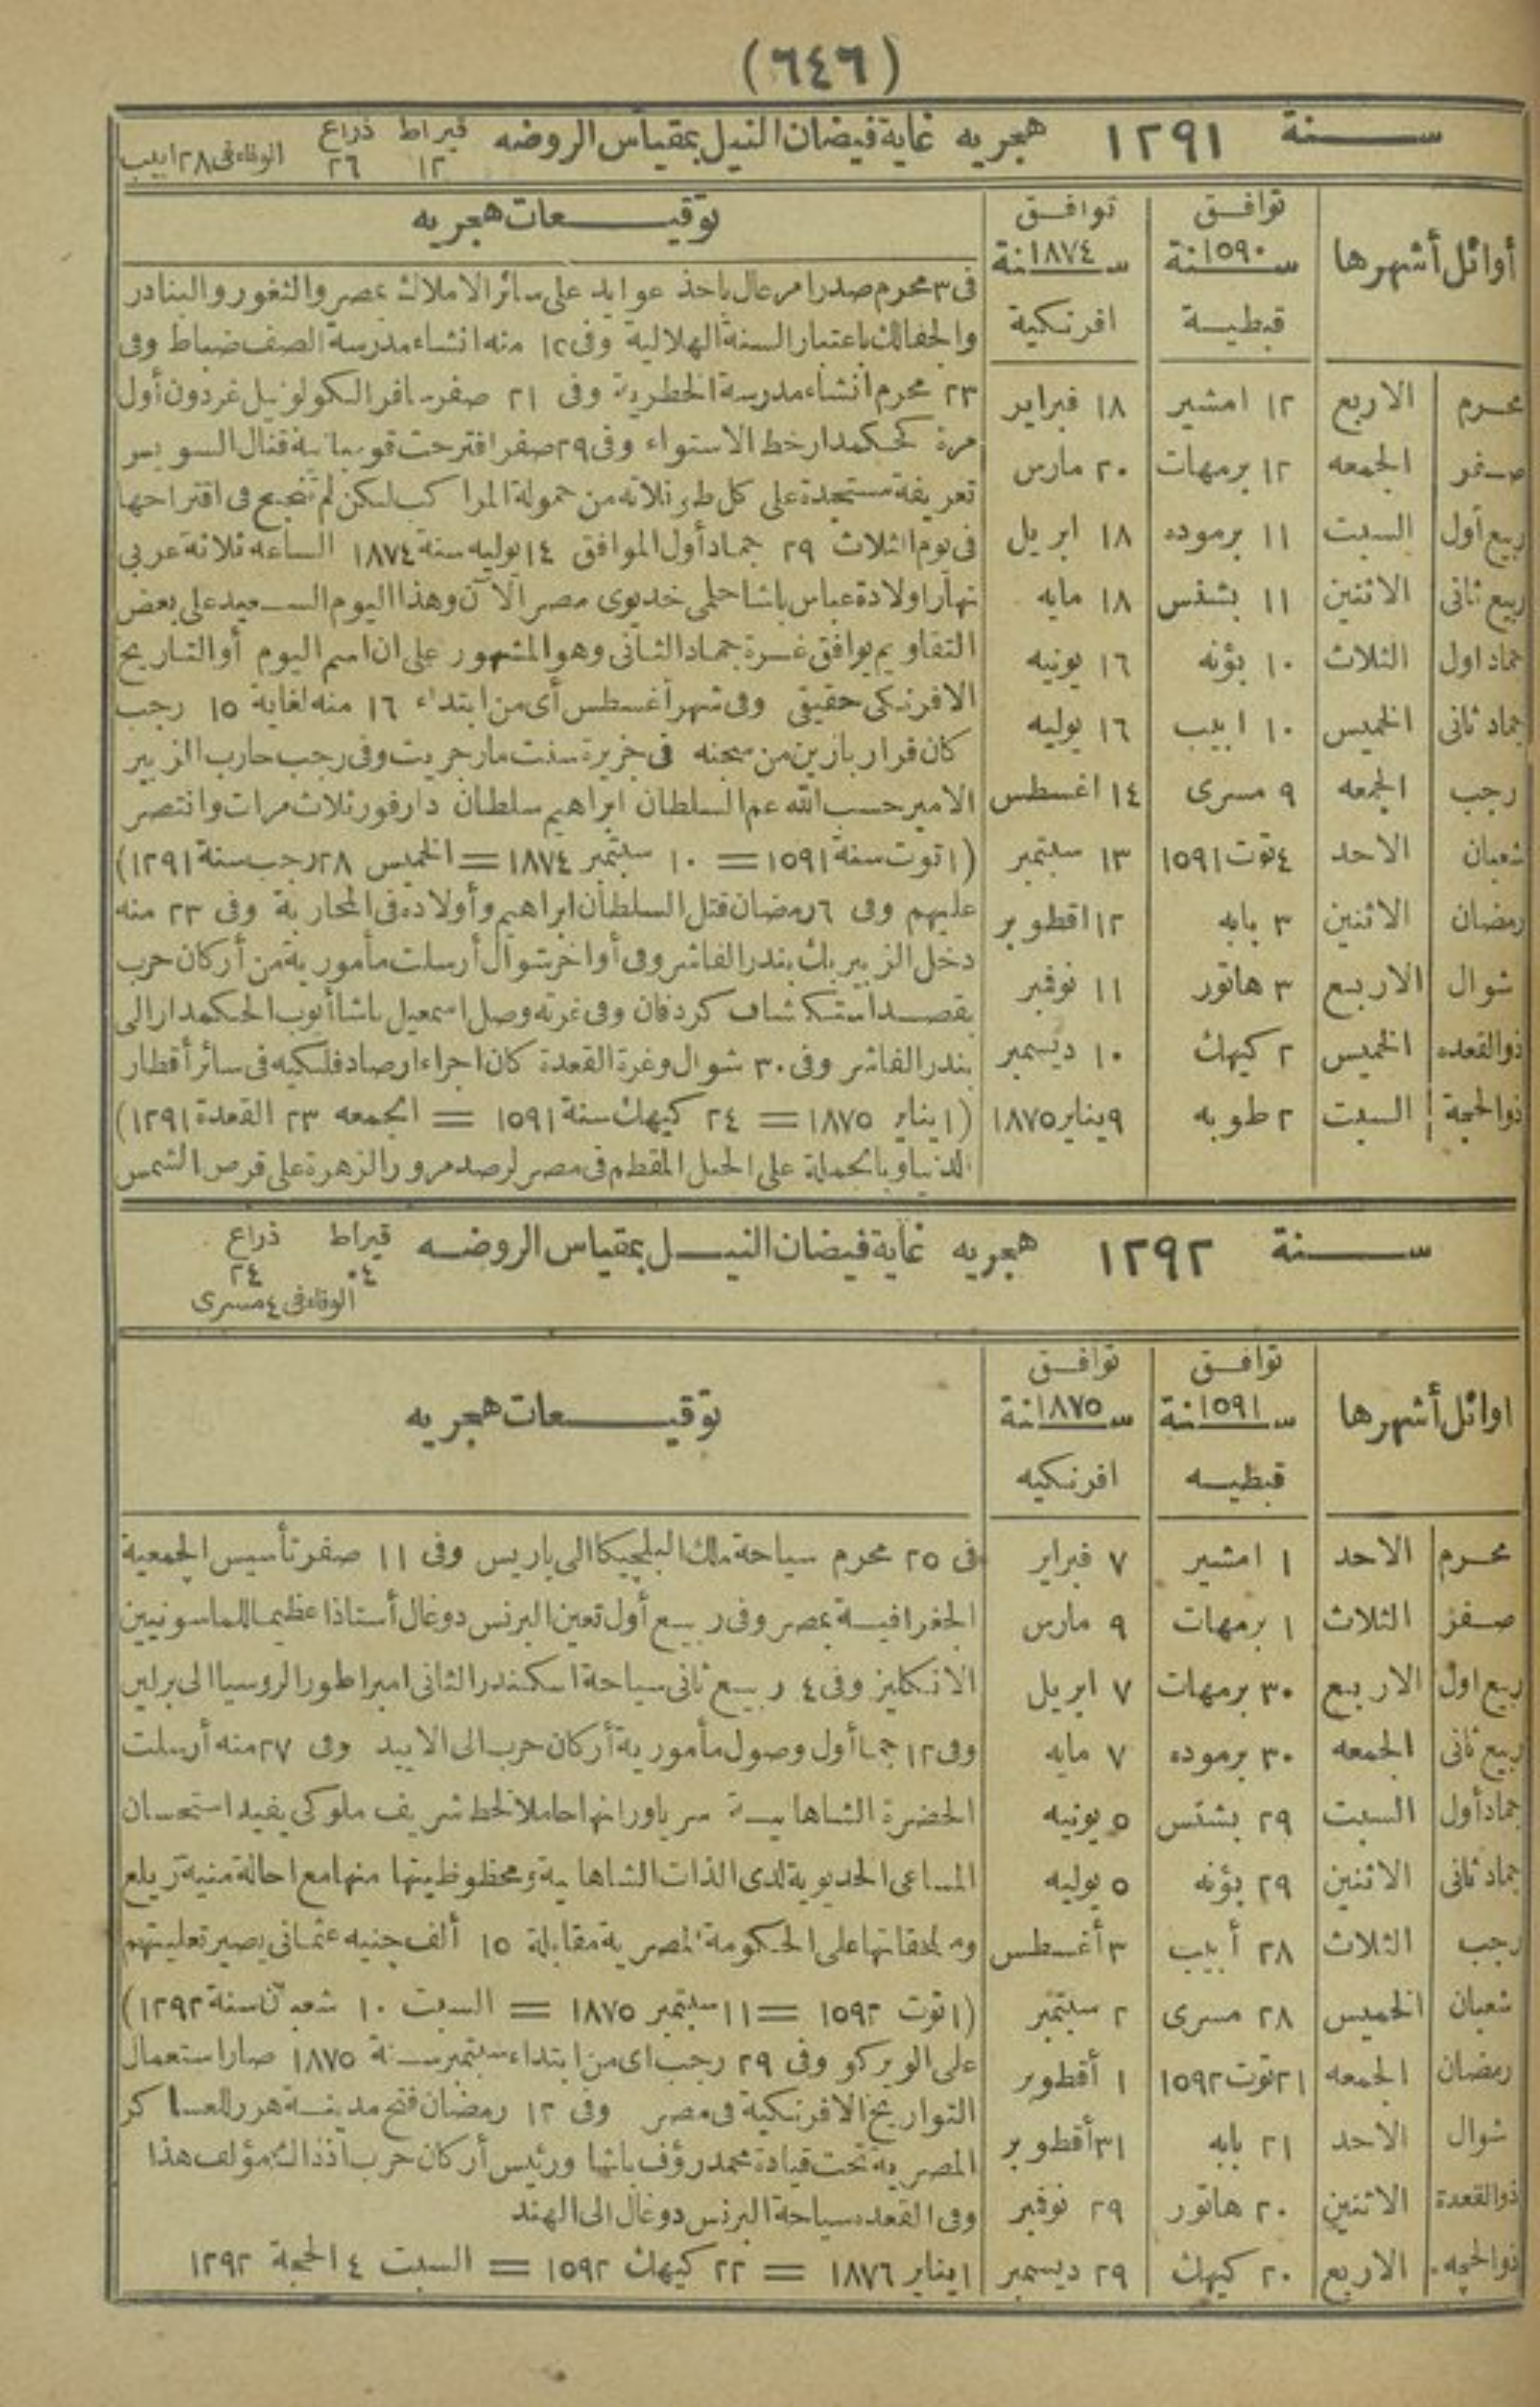 (٦٤٦)
سنة ١٢٩١ هجريه غاية فيضان النيل بمقياس الروضه قيراط ١٢ ذراع ٢٦ الوفاء فى ٢٨ ابيب
أوائل أشهرها
توافق سنة ١٥٩٠ قبطية
توافق سنة ١٨٧٤ افرنكية
توقيعات هجريه
محرم الاربع ١٢ امشير ١٨ فبراير
صفر الجمعه ١٢ برمهات ٢٠ مارس
ربيع أول السبت ١١ برموده ١٨ ابريل
ربيع ثانى الاثنين ١١ بشنس ١٨ مايه
جماد اول الثلاث ١٠ بؤنه ١٦ يونيه
جماد ثانى الخميس ١٠ ابيب ١٦ يوليه
رجب الجمعه ٩ مسرى ١٤ اغسطس
شعبان الاحد ٤ توت ١٥٩١ ١٣ سبتمبر
رمضان الاثنين ٣ بابه ١٢ اقطوبر
شوال الاربع ٣ هاتور ١١ نوفمبر
ذوالقعده الخميس ٢ كيهك ١٠ ديسمبر
ذوالحجة السبت ٢ طوبه ٩ يناير ١٨٧٥
فى ٣ محرم صدر امر عال باخذ عوايد على سائر الاملاك بمصر والثغور والبنادر
والجفالك باعتبار السنة الهلالية وفى ١٢ منه انشاء مدرسة الصف ضباط وفى
٢٣ محرم انشاء مدرسة الخطرية وفى ٢١ صفر سافر الكولونيل غردون أول
مرة كحكمدار خط الاستواء وفى ٢٩ صفر اقترحت قومبانية قنال السويس
تعريفة مستجدة على كل طونلاته من حمولة المراكب لكن لم تنجح فى اقتراحها
فى يوم الثلاث ٢٩ جماد أول الموافق ١٤ يوليه سنة ١٨٧٤ الساعه ثلاثة عربى
نهارا ولادة عباس باشا حلمى خديوى مصر الآن وهذا اليوم السعيد على بعض
التقاويم يوافق غرة جماد الثانى وهو المشهور على ان اسم اليوم أو التاريخ
الافرنكى حقيقى وفى شهر أغسطس أى من ابتداء ١٦ منه لغاية ١٥ رجب
كان فرار بازين من سجنه فى جزيرة سنت مارجريت وفى رجب حارب الزبير
الامير حسب الله عم السلطان ابراهيم سلطان دارفور ثلاث مرات وانتصر
(١ توت سنة ١٥٩١ = ١٠ سبتمبر ١٨٧٤ = الخميس ٢٨ رجب سنة ١٢٩١)
عليهم وفى ٦ رمضان قتل السلطان ابراهيم وأولاده فى المحاربة وفى ٢٣ منه
دخل الزبير بك بندر الفاشر وفى أواخر شوال أرسلت مأمورية من أركان حرب
بقصد استكشاف كردفان وفى غرته وصل اسمعيل باشا أيوب الحكمدار الى
بندر الفاشر وفى ٣٠ شوال وغرة القعدة كان اجراء ارصاد فلكيه فى سائر أقطار
(١ يناير ١٨٧٥ = ٢٤ كيهك سنة ١٥٩١ = الجمعه ٢٣ القعدة ١٢٩١)
الدنيا وبالجملة على الجبل المقطم فى مصر لرصد مرور الزهرة على قرص الشمس
سنة ١٢٩٢ هجريه غاية فيضان النيل بمقياس الروضه قيراط ٠٤ ذراع ٢٤
الوفاء فى ٤ مسرى
اوائل أشهرها
توافق سنة ١٥٩١ قبطيه
توافق سنة ١٨٧٥ افرنكيه
توقيعات هجريه
محرم الاحد ١ امشير ٧ فبراير
صفر الثلاث ١ برمهات ٩ مارس
ربيع اول الاربع ٣٠ برمهات ٧ ابريل
ربيع ثانى الجمعه ٣٠ برموده ٧ مايه
جماد أول السبت ٢٩ بشنس ٥ يونيه
جماد ثانى الاثنين ٢٩ بؤنه ٥ يوليه
رجب الثلاث ٢٨ أبيب ٣ أغسطس
شعبان الخميس ٢٨ مسرى ٢ سبتمبر
رمضان الجمعه ٢١ توت ١٥٩٢ ١ أقطوبر
شوال الاحد ٢١ بابه ٣١ أقطوبر
ذوالقعدة الاثنين ٢٠ هاتور ٢٩ نوفمبر
ذوالحجه الاربع ٢٠ كيهك ٢٩ ديسمبر
فى ٢٥ محرم سياحة ملك البلجيكا الى باريس وفى ١١ صفر تأسيس الجمعية
الجغرافية بمصر وفى ربيع أول تعين البرنس دوغال أستاذا عظيما للماسونيين
الانكليز وفى ٤ ربيع ثانى سياحة اسكندر الثانى امبراطور الروسيا الى برلين
وفى ١٢ جما أول وصول مأمورية أركان حرب الى الابيد وفى ٢٧ منه أرسلت
الحضرة الشاهانية سر ياورانها حاملا لخط شريف ملوكى يفيد استحسان
المساعى الخديوية لدى الذات الشاهانية ومحظوظيتها منها مع احالة مينة زيلع
وملحقاتها على الحكومة المصرية مقابلة ١٥ ألف جنيه عثمانى يصير تعليتهم
(١ توت ١٥٩٢ = ١١ سبتمبر ١٨٧٥ = السبت ١٠ شعبان سنة ١٢٩٢)
على الويركو وفى ٢٩ رجب اى من ابتداء سبتمبر سنة ١٨٧٥ صار استعمال
التواريخ الافرنكية فى مصر وفى ١٢ رمضان فتح مدينة هرر للعساكر
المصرية تحت قيادة محمد رؤف باشا ورئيس أركان حرب اذ ذاك مؤلف هذا
وفى القعده سياحة البرنس دوغال الى الهند
١ يناير ١٨٧٦ = ٢٢ كيهك ١٥٩٢ = السبت ٤ الحجة ١٢٩٢